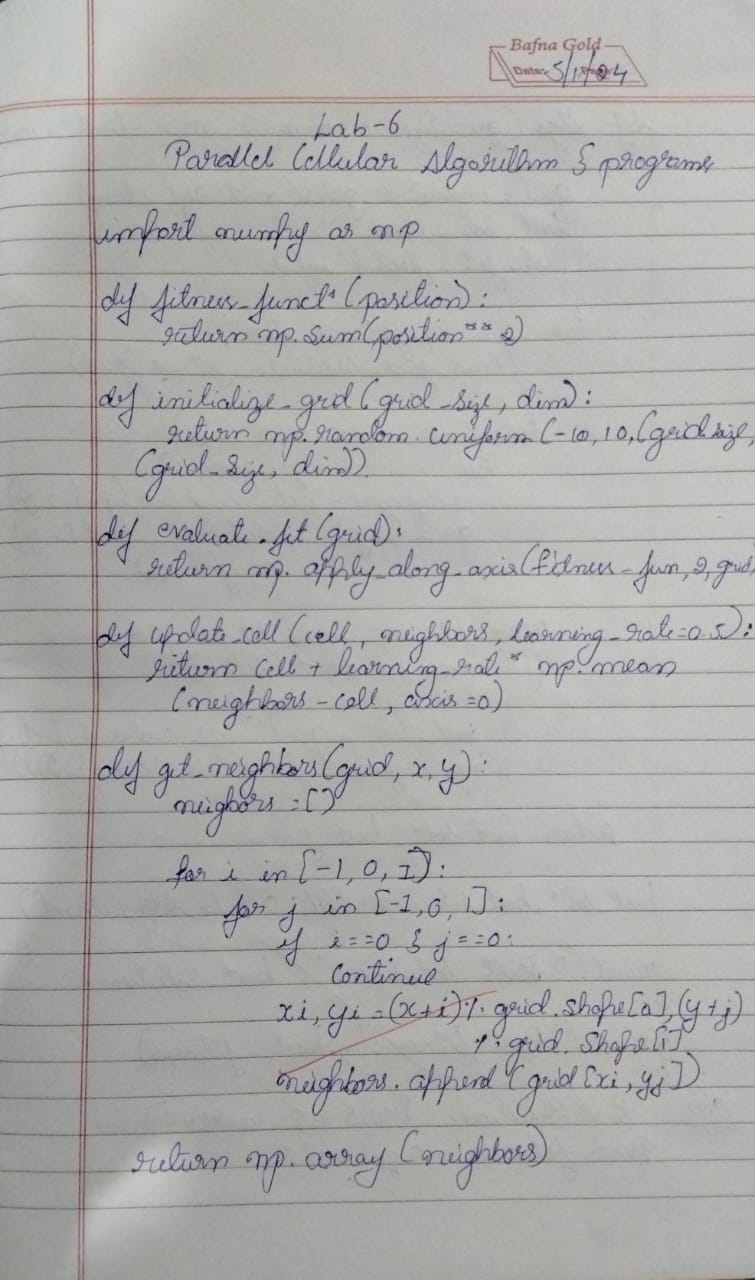 Bafna Gold
Date: 5/1/24
Lab-6
Parallel Cellular Algorithm & programs
import numpy as np
def fitness_funct^n (position):
return np.sum(position ** 2)
def initialize_grd (grid_size, dim):
return np.random.uniform (-10, 10, (grid size,
(grid_size, dim))
def evaluate.fit (grid):
return np.apply_along_axis(fitness_fun, 2, grid)
def update_cell (cell, neighbors, learning_rate=0.5):
return cell + learning_rate * np.mean
(neighbors - cell, axis=0)
def get_neighbors(grid, x, y):
neigbors = []
for i in [-1, 0, 1]:
for j in [-1, 0, 1]:
if i==0 & j==0:
Continue
xi, yi = (x+i) % grid.shape[0], (y+j)
% grid.shape[1]
neighbors.append (grid [xi, yj])
return np.array (neighbors)